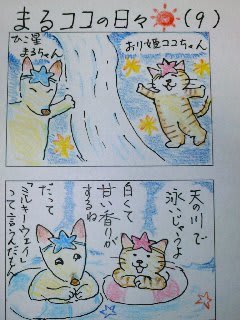 まるココの日々(9)
おり姫ココちゃん
ひこ星
まるちゃん
天の川で
泳いじゃうよ
白くて
甘い香りが
するね
だって
「ミルキーウェイ」
って言うんだもん